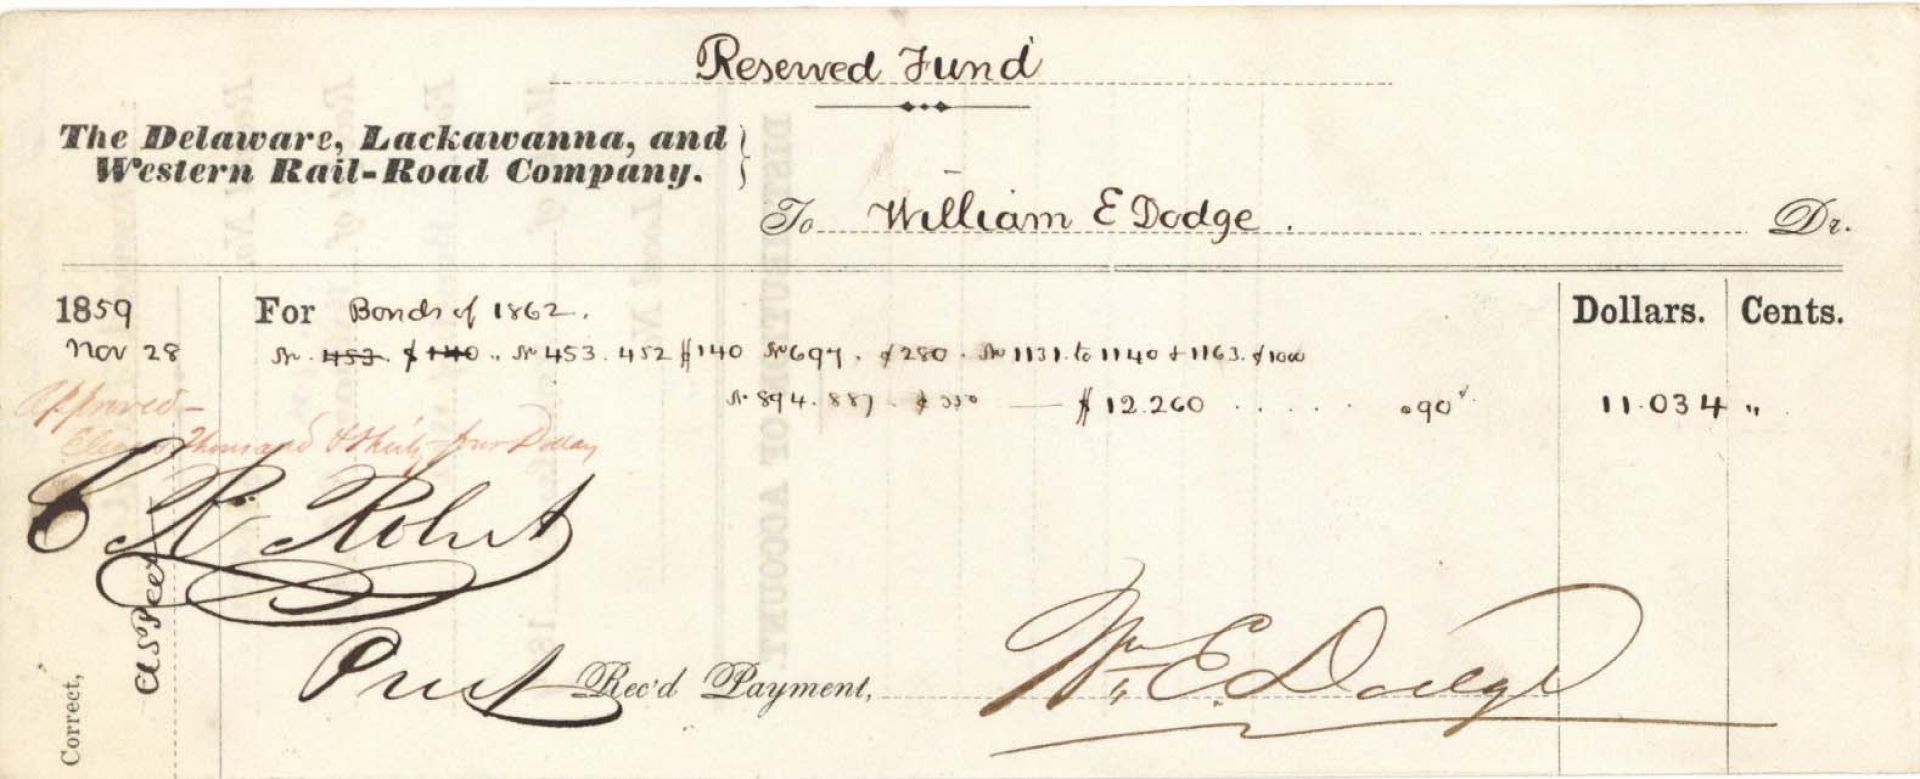 Reserved Fund
The Delaware, Lackawanna, and
Western Rail-Road Company.
To William E Dodge. Dr.
1859 For Bonds of 1862. Dollars. Cents.
Nov 28 No. 453. $140 „ No 453. 452 $140 No 697. $280. No 1131. to 1140 + 1163. $1000
No 894. 887. $ — $12.260 . . . . . . 90 11.034 „
Approved —
Eleven Thousand & thirty-four Dollars
C R Robert
Prest
Rec'd Payment, Wm. E. Dodge
Correct,